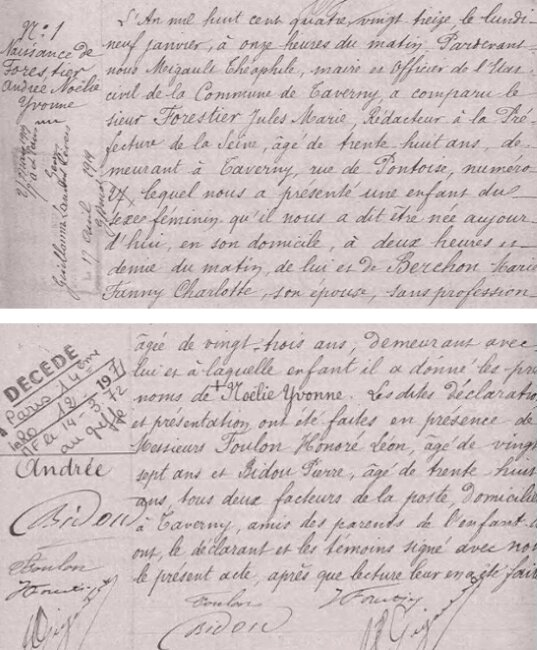 N° 1
Naissance de
Forestier
Andrée Noëlie
Yvonne
L'An mil huit cent quatre vingt treize le lundi
neuf janvier, à onze heures du matin Pardevant
nous Meigault Théophile, maire et Officier de l'Etat
civil de la Commune de Taverny, a comparu le
sieur Forestier Jules Marie, Rédacteur à la Pré-
fecture de la Seine, âgé de trente huit ans, de-
meurant à Taverny, rue de Pontoise, numéro
lequel nous a présenté une enfant du
sexe feminin qu'il nous a dit être née aujour-
d'hui, en son domicile, à deux heures et
demie du matin, de lui et de Berchon Marie
Fanny Charlotte, son épouse, sans profession
âgée de vingt-trois ans, demeurant avec
lui et à laquelle enfant il a donné les pré
noms de + Noëlie Yvonne. Les dites déclaration
et présentation ont été faites en présence de
Messieurs Foulon Honoré Léon, âgé de vingt
sept ans et Bidou Pierre, âgé de trente huit
ans, tous deux facteurs de la poste, domiciliés
à Taverny, amis des parents de l'enfant
ont, le déclarant et les témoins signé avec nous
le présent acte, après que lecture leur en a été faite
DÉCÉDÉ
à Paris 14ème
Andrée
Bidou
Foulon
Foulon
Bidou